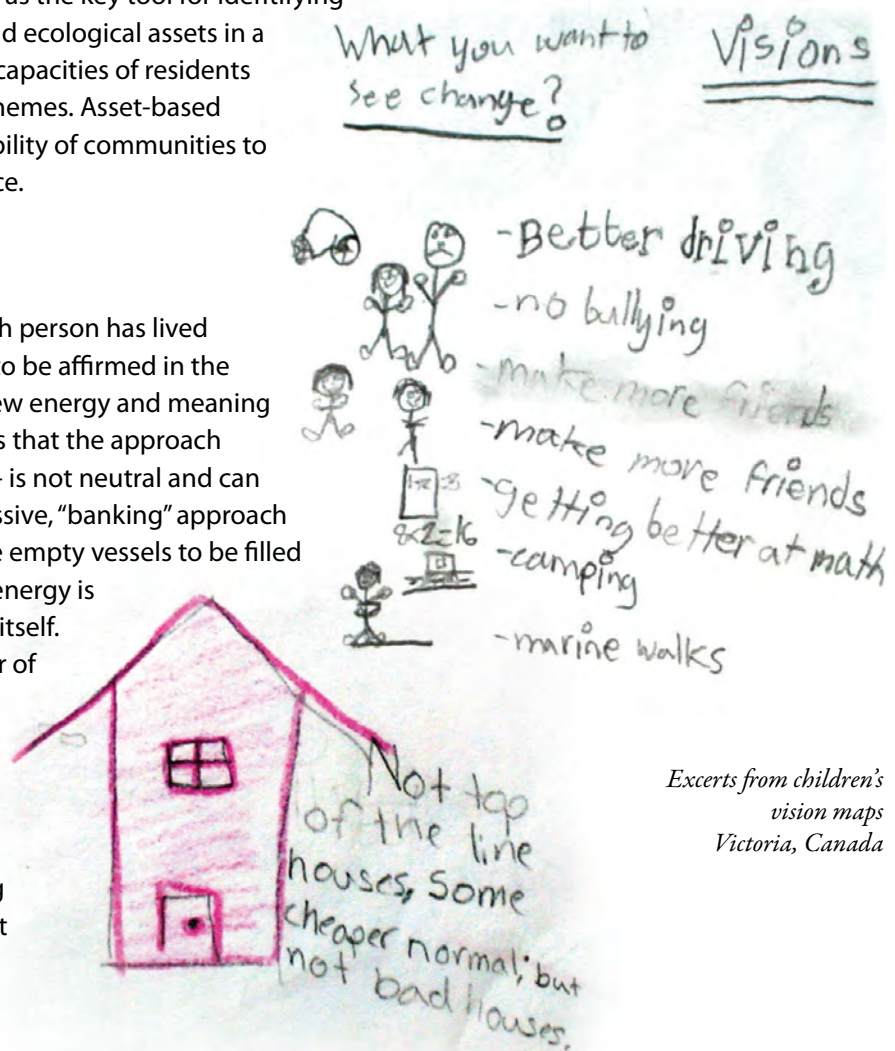 as the key tool for identifying
d ecological assets in a
capacities of residents
hemes. Asset-based
bility of communities to
ce.
h person has lived
to be affirmed in the
ew energy and meaning
s that the approach
is not neutral and can
ssive, "banking" approach
e empty vessels to be filled
energy is
itself.
r of
g
t
What you want to
see change?
Visions
-Better driving
-no bullying
-make more friends
-make more friends
-getting better at math
8x2=16
-camping
-marine walks
Not top
of the line
houses, Some
cheaper normal; but
not bad houses.
Excerpts from children's
vision maps
Victoria, Canada